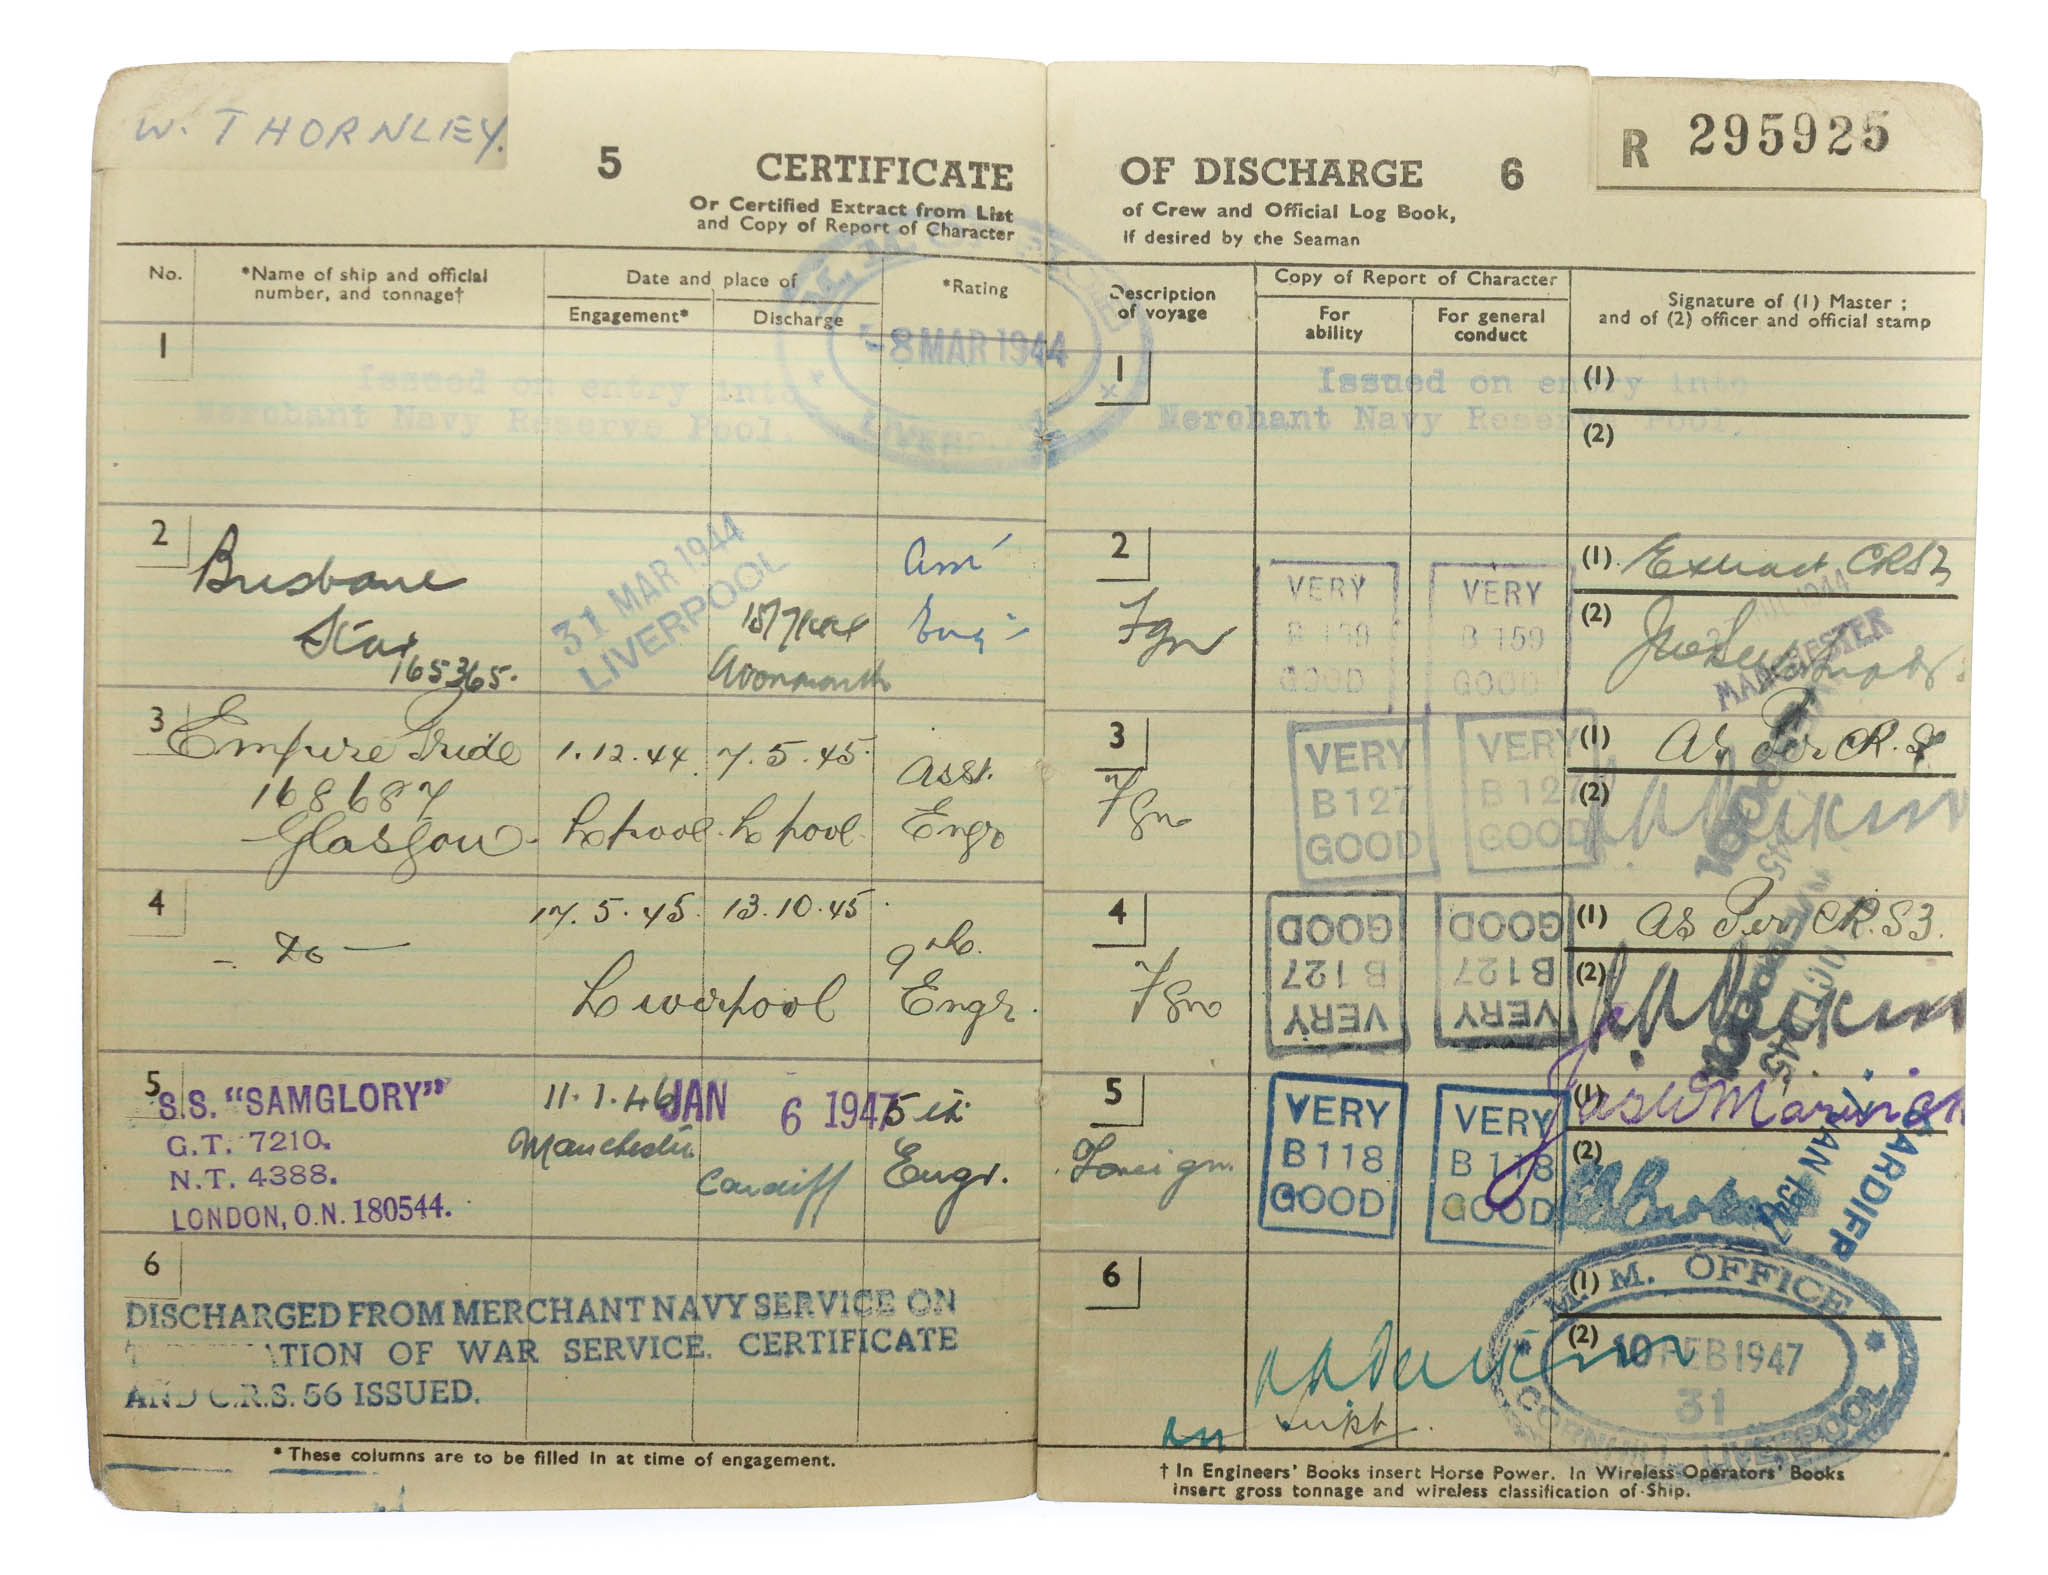 W. THORNLEY.
R 295925
5 CERTIFICATE
Or Certified Extract from List
and Copy of Report of Character
OF DISCHARGE 6
of Crew and Official Log Book,
if desired by the Seaman
No.
*Name of ship and official
number, and tonnage†
Date and place of
Engagement*
Discharge
*Rating
Description
of voyage
Copy of Report of Character
For
ability
For general
conduct
Signature of (1) Master;
and of (2) officer and official stamp
1
Issued on entry into
Merchant Navy Reserve Pool.
-8 MAR 1944
LIVERPOOL
1
Issued on entry into
Merchant Navy Reserve Pool.
(1)
(2)
2
Brisbane
Star
165365.
31 MAR 1944
LIVERPOOL
Avonmouth
2
Fgn
VERY
B 159
GOOD
VERY
B 159
GOOD
(1) Extract CRS
(2)
1944
MANCHESTER
3
Empire Pride
168687
Glasgow
1.12.44
Lpool
7.5.45
Lpool
Asst.
Engr
3
Fgn
VERY
B 127
GOOD
VERY
B 127
GOOD
(1) As Per C.R.S.
(2)
4
- Do -
17.5.45
13.10.45
Liverpool
Engr.
4
Fgn
VERY
B 127
GOOD
VERY
B 127
GOOD
(1) As Per C.R.S3.
(2)
OCT 1945
5
S.S. "SAMGLORY"
G.T. 7210.
N.T. 4388.
LONDON, O.N. 180544.
11.1.46
Manchester
JAN 6 1947
Cardiff
5th
Engr.
5
Foreign.
VERY
B 118
GOOD
VERY
B 118
GOOD
(1)
(2)
CARDIFF
JAN 1947
6
DISCHARGED FROM MERCHANT NAVY SERVICE ON
ATION OF WAR SERVICE. CERTIFICATE
AND C.R.S. 56 ISSUED.
6
(1)
(2)
Supt.
M.M. OFFICE
10 FEB 1947
31
CORNHILL LIVERPOOL
* These columns are to be filled in at time of engagement.
† In Engineers' Books insert Horse Power. In Wireless Operators' Books
insert gross tonnage and wireless classification of Ship.